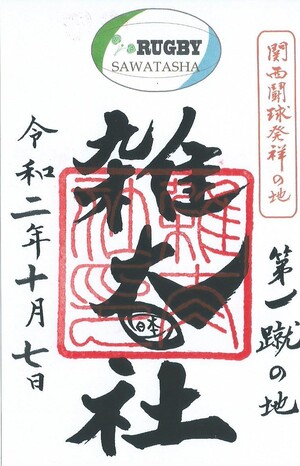 RUGBY
SAWATASHA
関西闘球発祥の地
第一蹴の地
雑太社
日本一
令和二年十月七日